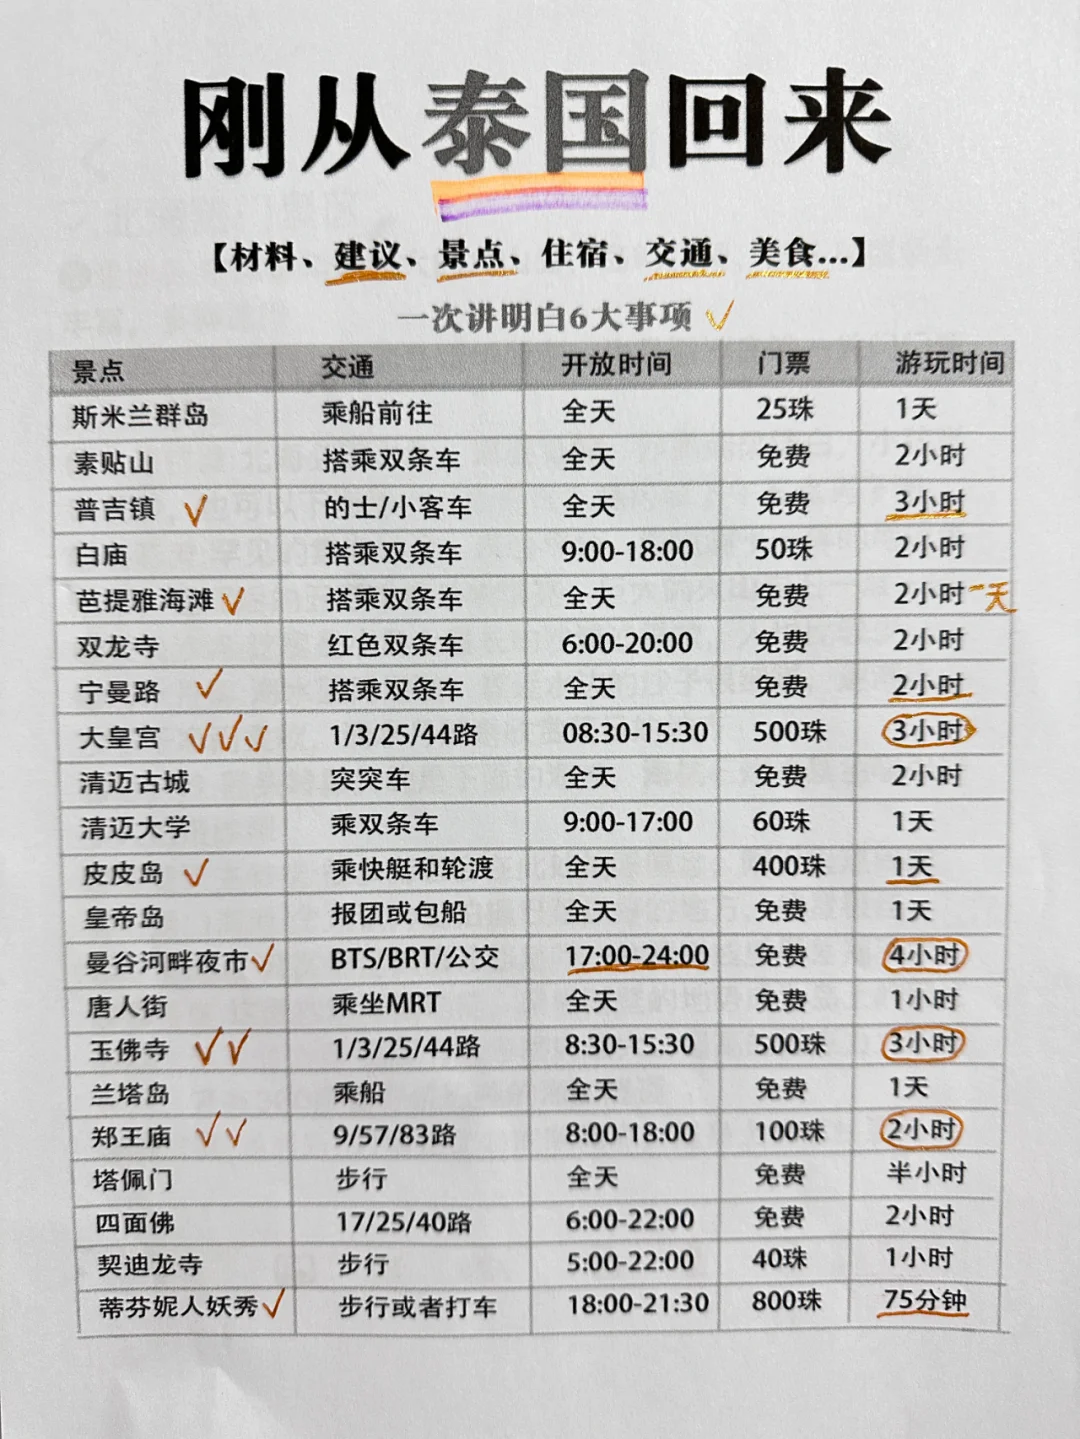 刚从泰国回来
【材料、建议、景点、住宿、交通、美食...】
一次讲明白6大事项 ✓
景点 交通 开放时间 门票 游玩时间
斯米兰群岛 乘船前往 全天 25珠 1天
素贴山 搭乘双条车 全天 免费 2小时
普吉镇 ✓ 的士/小客车 全天 免费 3小时
白庙 搭乘双条车 9:00-18:00 50珠 2小时
芭提雅海滩 ✓ 搭乘双条车 全天 免费 2小时-天
双龙寺 红色双条车 6:00-20:00 免费 2小时
宁曼路 ✓ 搭乘双条车 全天 免费 2小时
大皇宫 ✓✓✓ 1/3/25/44路 08:30-15:30 500珠 3小时
清迈古城 突突车 全天 免费 2小时
清迈大学 乘双条车 9:00-17:00 60珠 1天
皮皮岛 ✓ 乘快艇和轮渡 全天 400珠 1天
皇帝岛 报团或包船 全天 免费 1天
曼谷河畔夜市 ✓ BTS/BRT/公交 17:00-24:00 免费 4小时
唐人街 乘坐MRT 全天 免费 1小时
玉佛寺 ✓✓ 1/3/25/44路 8:30-15:30 500珠 3小时
兰塔岛 乘船 全天 免费 1天
郑王庙 ✓✓ 9/57/83路 8:00-18:00 100珠 2小时
塔佩门 步行 全天 免费 半小时
四面佛 17/25/40路 6:00-22:00 免费 2小时
契迪龙寺 步行 5:00-22:00 40珠 1小时
蒂芬妮人妖秀 ✓ 步行或者打车 18:00-21:30 800珠 75分钟